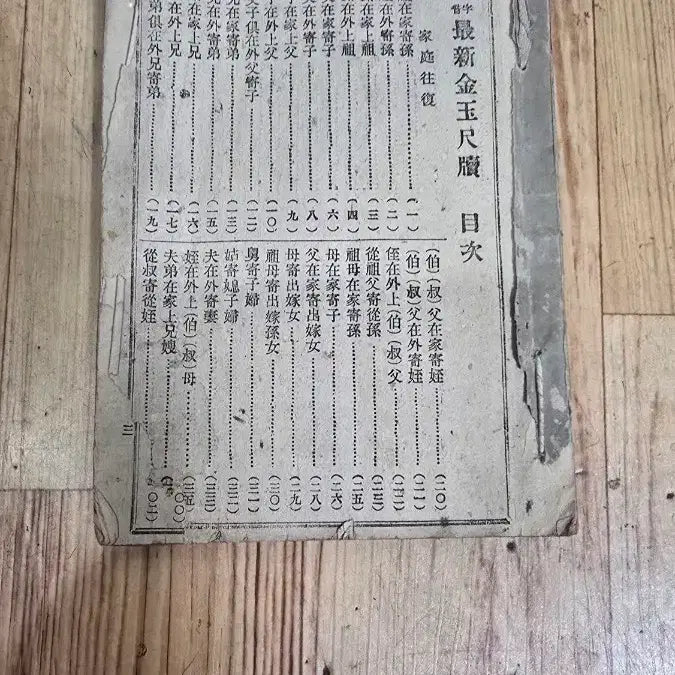 最新金玉尺牘 目次
家庭往復
在家寄孫………(一)
在外寄孫………(二)
在家上祖………(三)
在外上祖………(四)
在家寄子………(六)
在外寄子………(八)
在家上父………(九)
在外上父………(一〇)
子俱在外父寄子………(一二)
在家寄弟………(一三)
在外寄弟………(一五)
在家上兄………(一六)
在外上兄………(一七)
弟俱在外兄寄弟………(一九)
(伯)(叔)父在家寄姪………(二〇)
(伯)(叔)父在外寄姪………(二一)
侄在外上(伯)(叔)父………(二二)
從祖父寄從孫………(二三)
祖母在家寄孫………(二五)
母在家寄子………(二六)
父在家寄出嫁女………(二八)
母寄出嫁女………(二九)
祖母寄出嫁孫女………(三〇)
舅寄子婦………(三一)
姑寄媳子婦………(三二)
夫在外寄妻………(三三)
姪在外上(伯)(叔)母………(三五)
夫弟在家上兄嫂………
從叔寄從姪………
三